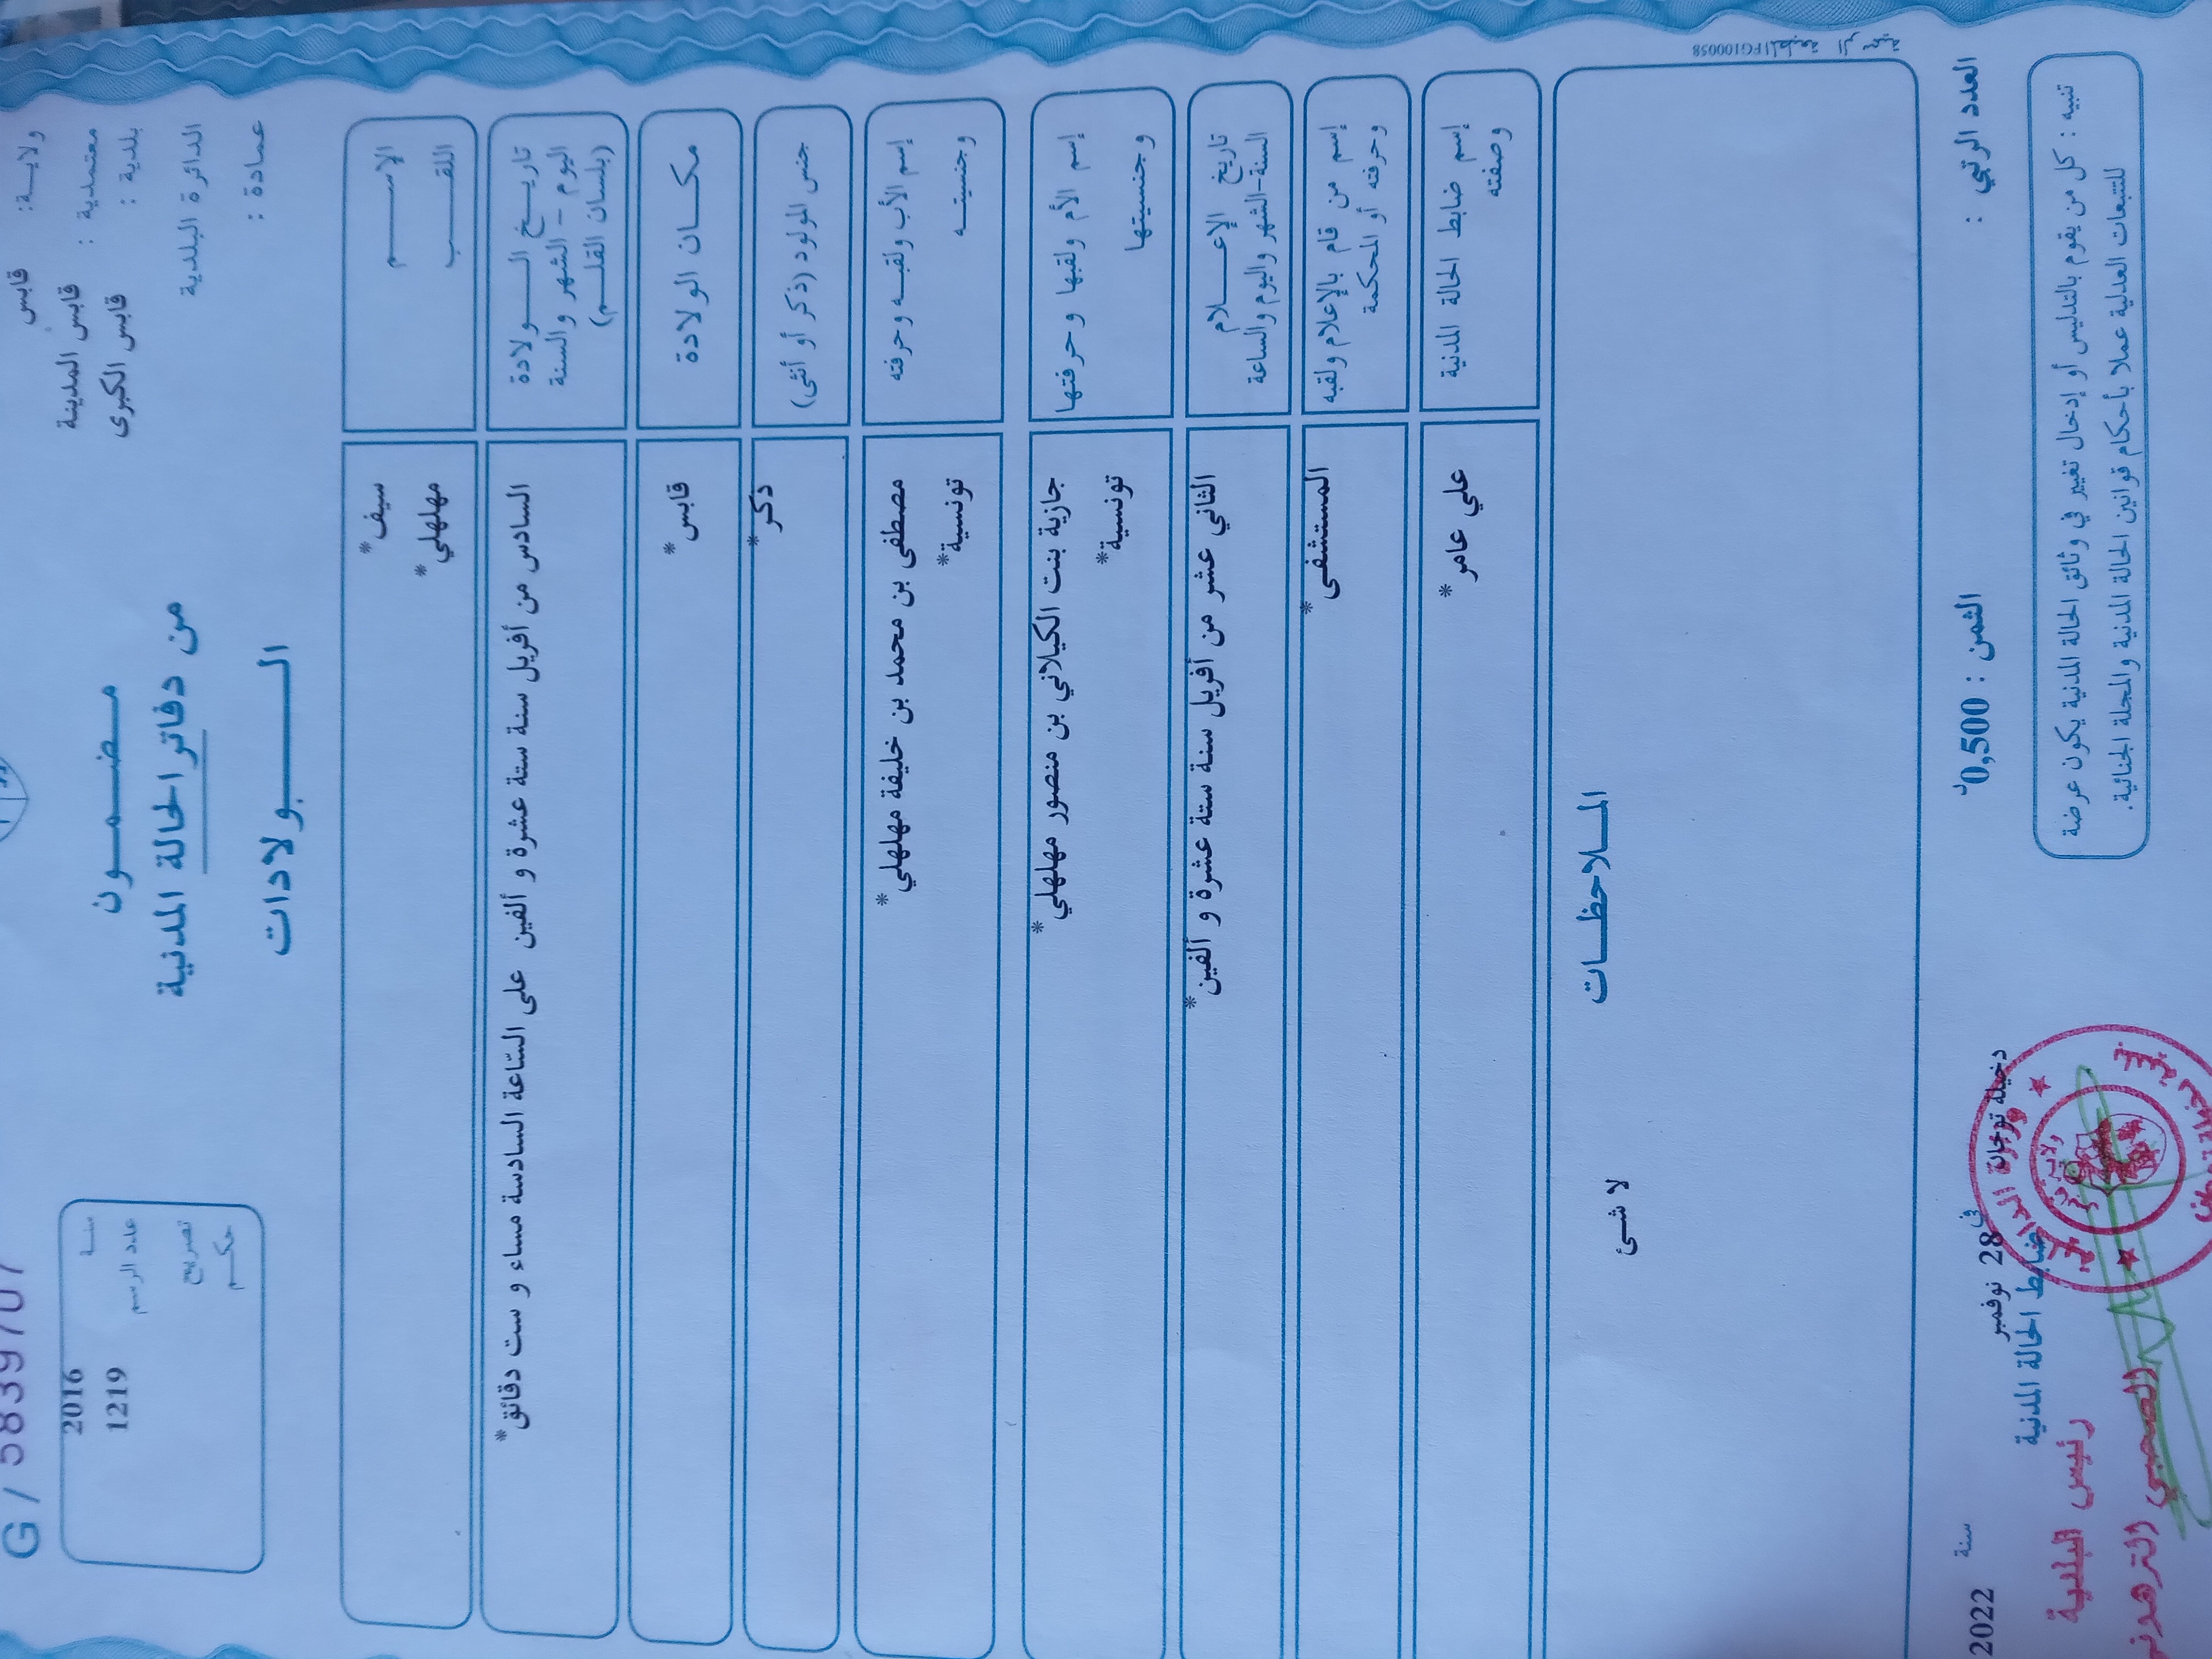 G / 5839707
ولايـــة: قابس
معتمدية : قابس المدينة
بلدية : قابس الكبرى
الدائرة البلدية
عمادة :
مـــضـــمـــــون
من دفاتر الحالة المدنية
الـــــــــــولادات
سنـة 2016
عدد الرسم 1219
تصريح
حكــم
الإســــــم
اللقـــــب
سيف*
مهلهلي*
تاريـــخ الـــــولادة
اليوم - الشهر والسنة
(بلسان القلـــم)
السادس من أفريل سنة ستة عشرة و ألفين على السّاعة السادسة مساء و ست دقائق*
مكـــان الولادة
قابس*
جنس المولود (ذكر أو أنثى)
ذكر*
إسم الأب ولقبـه وحرفته
وجنسيتـــه
مصطفى بن محمد بن خليفة مهلهلي*
تونسية*
إسم الأم ولقبها وحرفتها
وجنسيتها
جازية بنت الكيلاني بن منصور مهلهلي*
تونسية*
تاريخ الإعــــلام
السنة-الشهر واليوم والساعة
الثاني عشر من أفريل سنة ستة عشرة و ألفين*
إسم من قام بالإعلام ولقبه
وحرفته أو المحكمة
المستشفى*
إسم ضابط الحالة المدنية
وصفته
علي عامر*
المــلاحظــــات
لا شئ
FG100058
العدد الرتبي :
الثمن : 0,500د
دخيلة توجان
في 28 نوفمبر سنة 2022
ضابط الحالة المدنية
رئيس البلدية
تنبيه : كل من يقوم بالتدليس أو إدخال تغيير في وثائق الحالة المدنية يكون عرضة
للتتبعات العدلية عملا بأحكام قوانين الحالة المدنية والمجلة الجنائية.